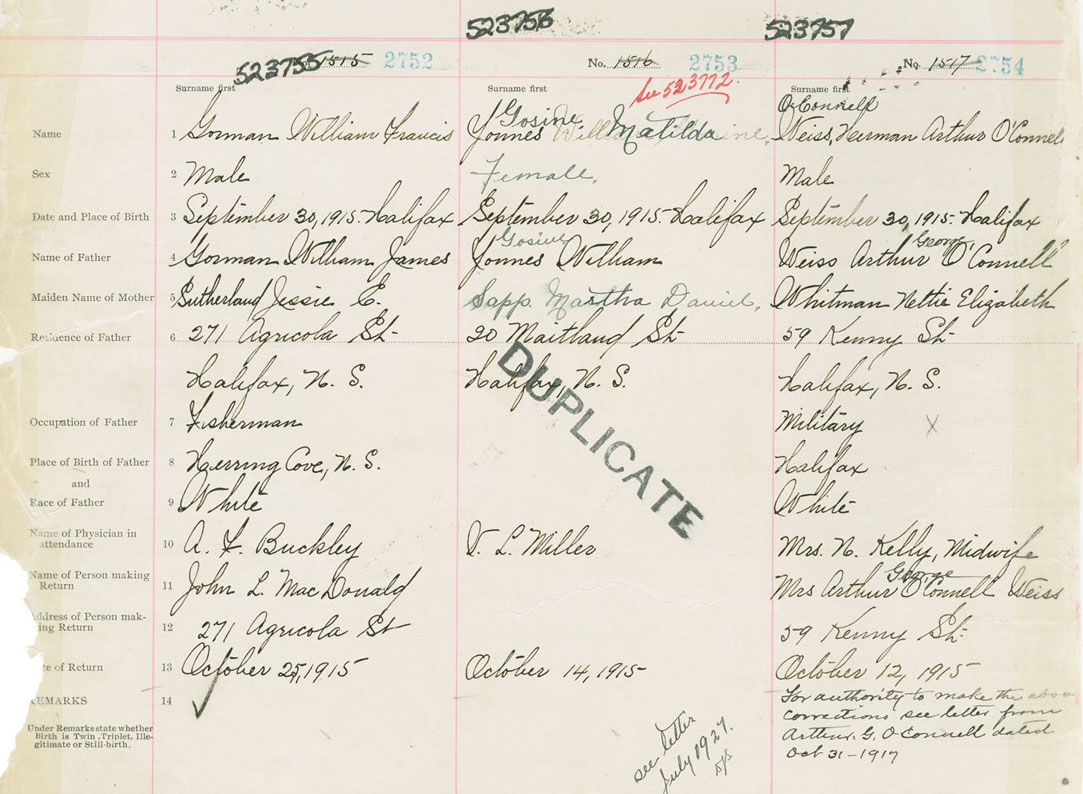 523756
523757
523755 1515 2752
No. 1516 2753
No. 1517 2754
See 523772.
Surname first
Surname first
Surname first
O'Connell
Gosine Matilda
Name 1 Gorman William Francis Younes Weiss, Herman Arthur O'Connell
Sex 2 Male Female. Male
Date and Place of Birth 3 September 30, 1915-Halifax September 30, 1915-Halifax September 30, 1915-Halifax
Gosine George
Name of Father 4 Gorman William James Younes William Weiss Arthur O'Connell
Maiden Name of Mother 5 Sutherland Jessie E. Sapp Martha Daniel. Whitman Nettie Elizabeth
Residence of Father 6 271 Agricola St 20 Maitland St 59 Kenny St
Halifax, N. S. Halifax, N. S. Halifax, N. S.
DUPLICATE
Occupation of Father 7 Fisherman Military X
Place of Birth of Father 8 Herring Cove, N. S. Halifax
and
Race of Father 9 White White
Name of Physician in
attendance 10 A. F. Buckley V. L. Miller Mrs. N. Kelly, Midwife
Name of Person making George
Return 11 John L. MacDonald Mrs Arthur O'Connell Weiss
Address of Person mak-
ing Return 12 271 Agricola St 59 Kenny St.
te of Return 13 October 25, 1915 October 14, 1915 October 12, 1915
REMARKS 14
For authority to make the above
corrections see letter from
Arthur. G. O'Connell dated
Oct 31-1917
Under Remarks state whether
Birth is Twin, Triplet, Ille-
gitimate or Still-birth.
see letter
July 1927.